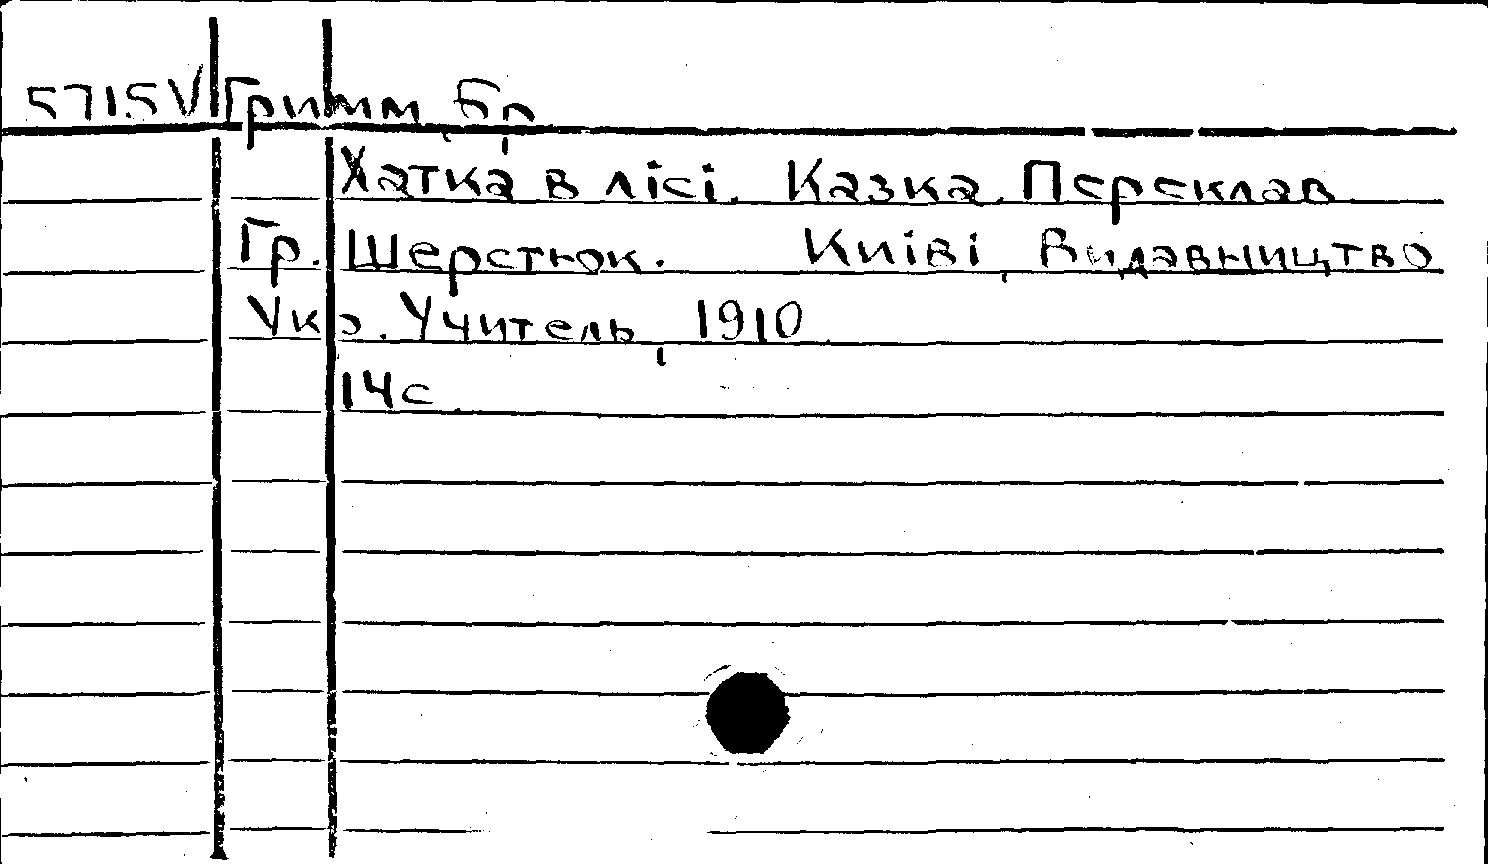 5715V Гримм, Бр.
Хатка в лісі. Казка. Переклав
Гр. Шерстюк. Київі, Видавництво
Укр. Учитель, 1910
14с